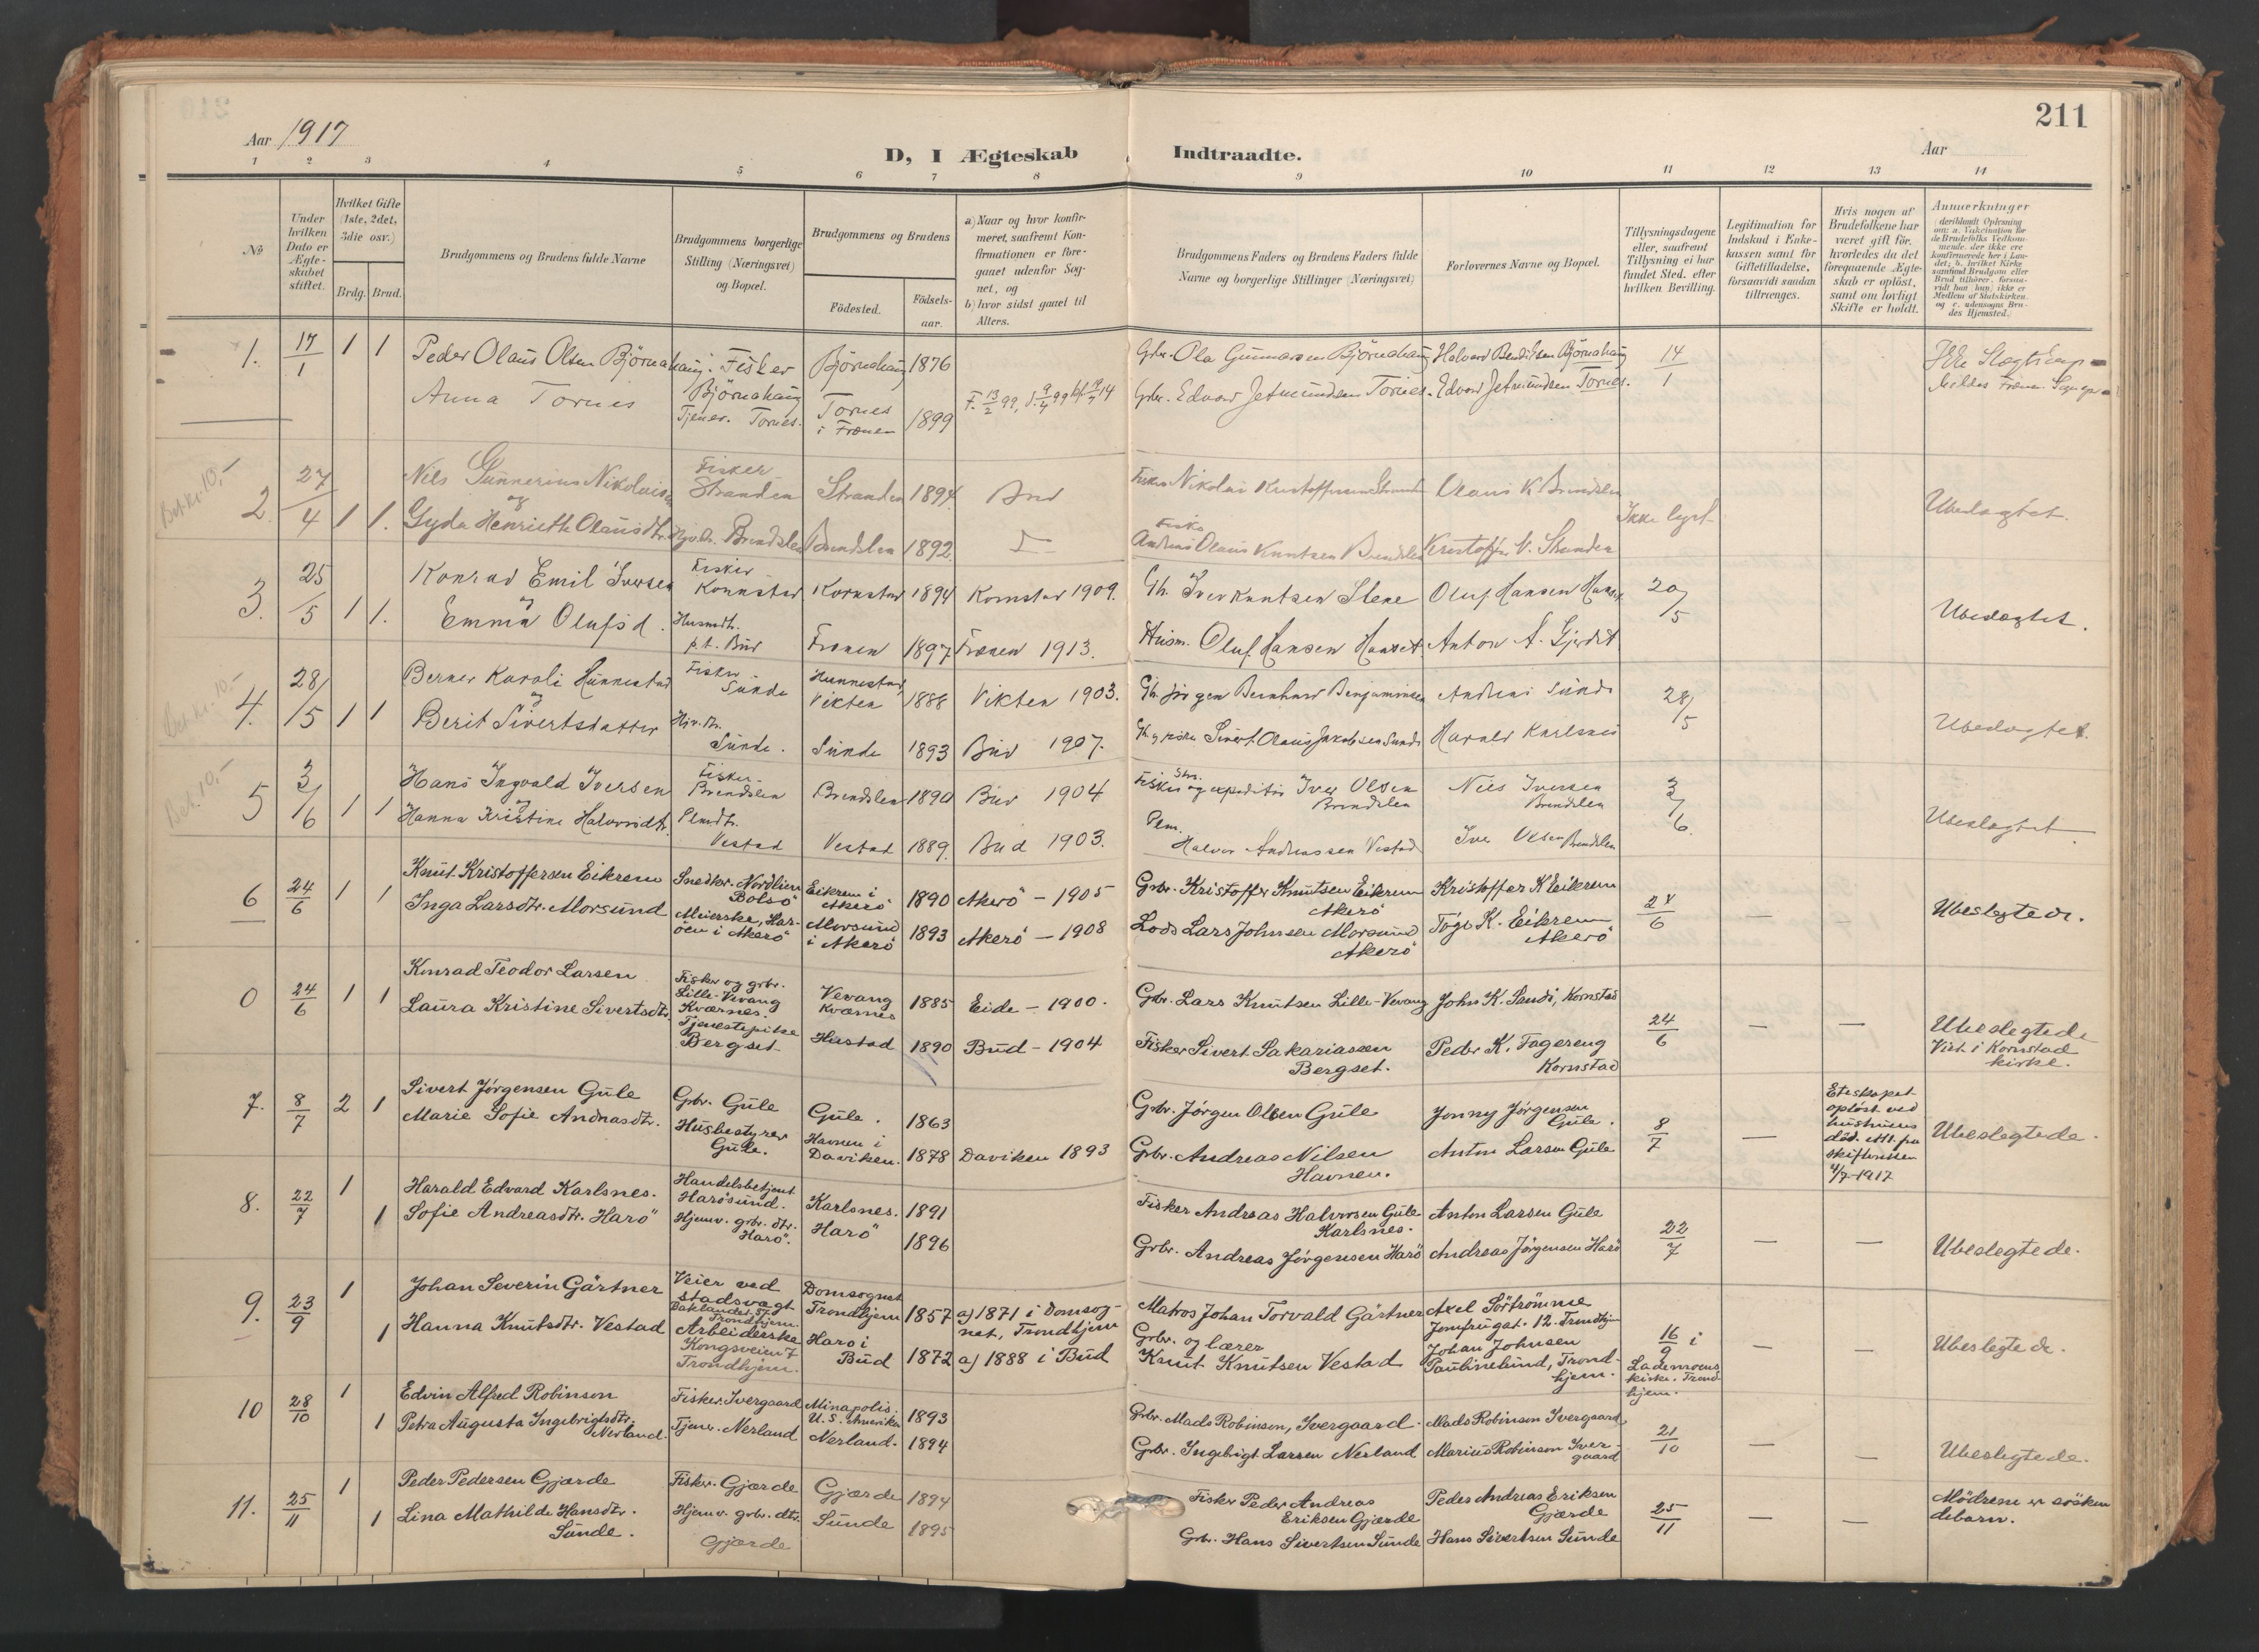 211
Aar 1917
D, I Ægteskab Indtraadte.
Aar
1 2 3 4 5 6 7 8 9 10 11 12 13 14
No
Under hvilken Dato er Ægteskabet stiftet.
Hvilket Gifte (1ste, 2det, 3die osv.)
Brdg. Brud.
Brudgommens og Brudens fulde Navne
Brudgommens borgerlige Stilling (Næringsvei) og Bopæl.
Brudgommens og Brudens
Födested.
Födselsaar.
a) Naar og hvor konfirmeret, saafremt Konfirmationen er foregaaet udenfor Sognet, og
b) hvor sidst gaaet til Alters.
Brudgommens Faders og Brudens Faders fulde Navne og borgerlige Stillinger (Næringsvei)
Forlovernes Navne og Bopæl.
Tillysningsdagene eller, saafremt Tillysning ei har fundet Sted, efter hvilken Bevilling.
Legitimation for Indskud i Enkekassen samt for Giftetilladelse, forsaavidt saadan tiltrænges.
Hvis nogen af Brudefolkene har været gift för, hvorledes da det foregaaende Ægteskab er oplöst, samt om lovligt Skifte er holdt.
Anmerkninger
1. 17/1 1 1 Peder Olaus Olsen Björnahaug. Fisker Björnahaug Björnahaug 1876
Grbr. Ola Gunnarsen Björnahaug Halvard Bendiksen Björnahaug 14/1
Anna Tornes Tjener. Tornes. Tornes i Frænen 1899
Grbr. Edvard Jetmundsen Tornes. Edvard Jetmundsen Tornes.
Bet. kr. 10,-
2. 27/4 1 1. Nils Gunnerius Nikolaisen Fisker Stranden Stranden 1894. Bud
Fisker Nikolai Kristoffersen Olaus K Brendslen Ikke lyst Ubeslægtet.
og
Gyda Henriette Olausdtr. Brendslen Brendslen 1892
Fisker Andreas Olaus Knutsen Brendslen Kristoffer N. Stranden
3. 25/5 1 1. Konrad Emil Iversen Fisker Kornstad Kornstad 1894 Kornstad 1909.
Iver Knutsen Stene Oluf Hansen 20/5 Ubeslægtet.
og
Emma Olufsd. Husmdtr. p.t. Bud Frænen 1897 Frænen 1913.
Husm. Oluf Hansen Anton A. Gjerdet
4. 28/5 1 1 Berner Karoli Hunnestad Fisker Sunde Hunnestad, Vikten 1888 Vikten 1903.
Jørgen Bernhard Benjaminsen Andreas Sunde 28/5 Ubeslægtet.
og
Berit Sivertsdatter Sunde. Sunde 1893 Bud 1907.
Sivert Olaus Jakobsen Sunde Harald Karlsnes
Bet. 10,-
5 3/6 1 1 Hans Ingvald Iversen Fisker Brendslen Brendslen 1890 Bud 1904
Fisker og expeditør Iver Olsen Brendslen Nils Iversen Brendslen 3/6. Ubeslægtet
og
Hanna Kristine Halvorsdtr. Plmdtr. Vestad Vestad 1889. Bud 1903.
Plm. Halvor Andreassen Vestad Iver Olsen Brendslen
6 24/6 1 1 Knut Kristoffersen Eikrem Snedker. Nordlien Bolsö Eikrem i Akerö 1890 Akerö - 1905
Grbr. Kristoffer Knutsen Eikrem Akerö Kristoffer K Eikrem 24/6 — Ubeslegtede.
Inga Larsdtr. Morsund Meierske, Haröen i Akerö Morsund i Akerö 1893 Akerö - 1908
Lods Lars Johnsen Morsund Akerö K. Eikrem Akerö
0 24/6 1 1 Konrad Teodor Larsen Fisker og grbr. Lille-Vevang Kværnes. Vevang Kværnes 1885 Eide - 1900.
Grbr. Lars Knutsen Lille-Vevang John K. Sandö, Kornstad 24/6 — — Ubeslegtede Viet i Kornstad kirke.
Laura Kristine Sivertsdtr. Tjenestepike Bergset Hustad 1890 Bud - 1904
Fisker Sivert Sakariassen Bergset. Peder K. Fagereng Kornstad
7. 8/7 2 1 Sivert Jörgensen Gule Grbr. Gule Gule. 1863
Grbr. Jörgen Olsen Gule Jonny Jörgensen Gule. 8/7 — Ekteskapet oplöst ved hustruens död. Att. fra skifteretten 4/7-1917 Ubeslegtede.
Marie Sofie Andreasdtr. Husbestyrer Gule. Havnen i Daviken. 1878 Daviken 1893
Grbr. Andreas Nilsen Havnen. Anton Larsen Gule
8. 22/7 1 Harald Edvard Karlsnes. Handelsbetjent Harösund. Karlsnes. 1891
Fisker Andreas Halvorsen Gule Karlsnes. Anton Larsen Gule 22/7 — — Ubeslegtede.
1 Sofie Andreasdtr. Harö Hjemv. grbr. dtr. Harö. Harö 1896
Grbr. Andreas Jörgensen Harö Andreas Jörgensen Harö
9. 23/9 1 Johan Severin Gärtner Veier ved stadsvægt Baklandet 57 Trondhjem. Domsognet Trondhjem 1857 a) 1871 i Domsognet, Trondhjem
Matros Johan Torvald Gärtner Axel Sörtrømme Jomfrugat. 12. Trondhjem 16/9 i Lademoens kirke. Trondhjem. — — Ubeslegtede.
1 Hanna Knutsdtr. Vestad Arbeiderske Kongsveien 7 Trondhjem. Harö i Bud 1872 a) 1888 i Bud
Grbr. og lærer Knut Knutsen Vestad Johan Johnsen Paulinelund, Trondhjem.
10 28/10 1 Edvin Alfred Robinson Fisker. Ivergaard Minapolis. U.S. Amerika 1893
Grbr. Mads Robinson, Ivergaard. Mads Robinson Ivergaard 21/10 — — Ubeslegtede.
1 Petra Augusta Ingebrigtsdtr. Nerland. Tjener. Nerland Nerland. 1894
Grbr. Ingebrigt Larsen Nerland Marius Robinson Ivergaard
11. 25/11 1 Peder Pedersen Gjærde Fisker. Gjærde Gjærde 1894
Fisker Peder Andreas Eriksen Gjærde Peder Andreas Eriksen Gjærde 25/11 — — Mödrene er söskendebarn.
1 Lina Mathilde Hansdtr. Sunde. Hjemv. grbr. dtr. Gjærde Sunde 1895
Grbr. Hans Sivertsen Sunde Hans Sivertsen Sunde